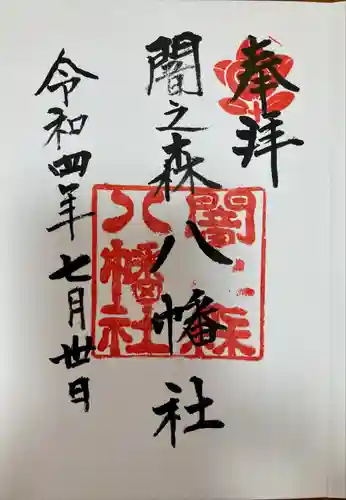 奉拝
闇之森八幡社
令和四年七月卅日
闇之森
八幡社